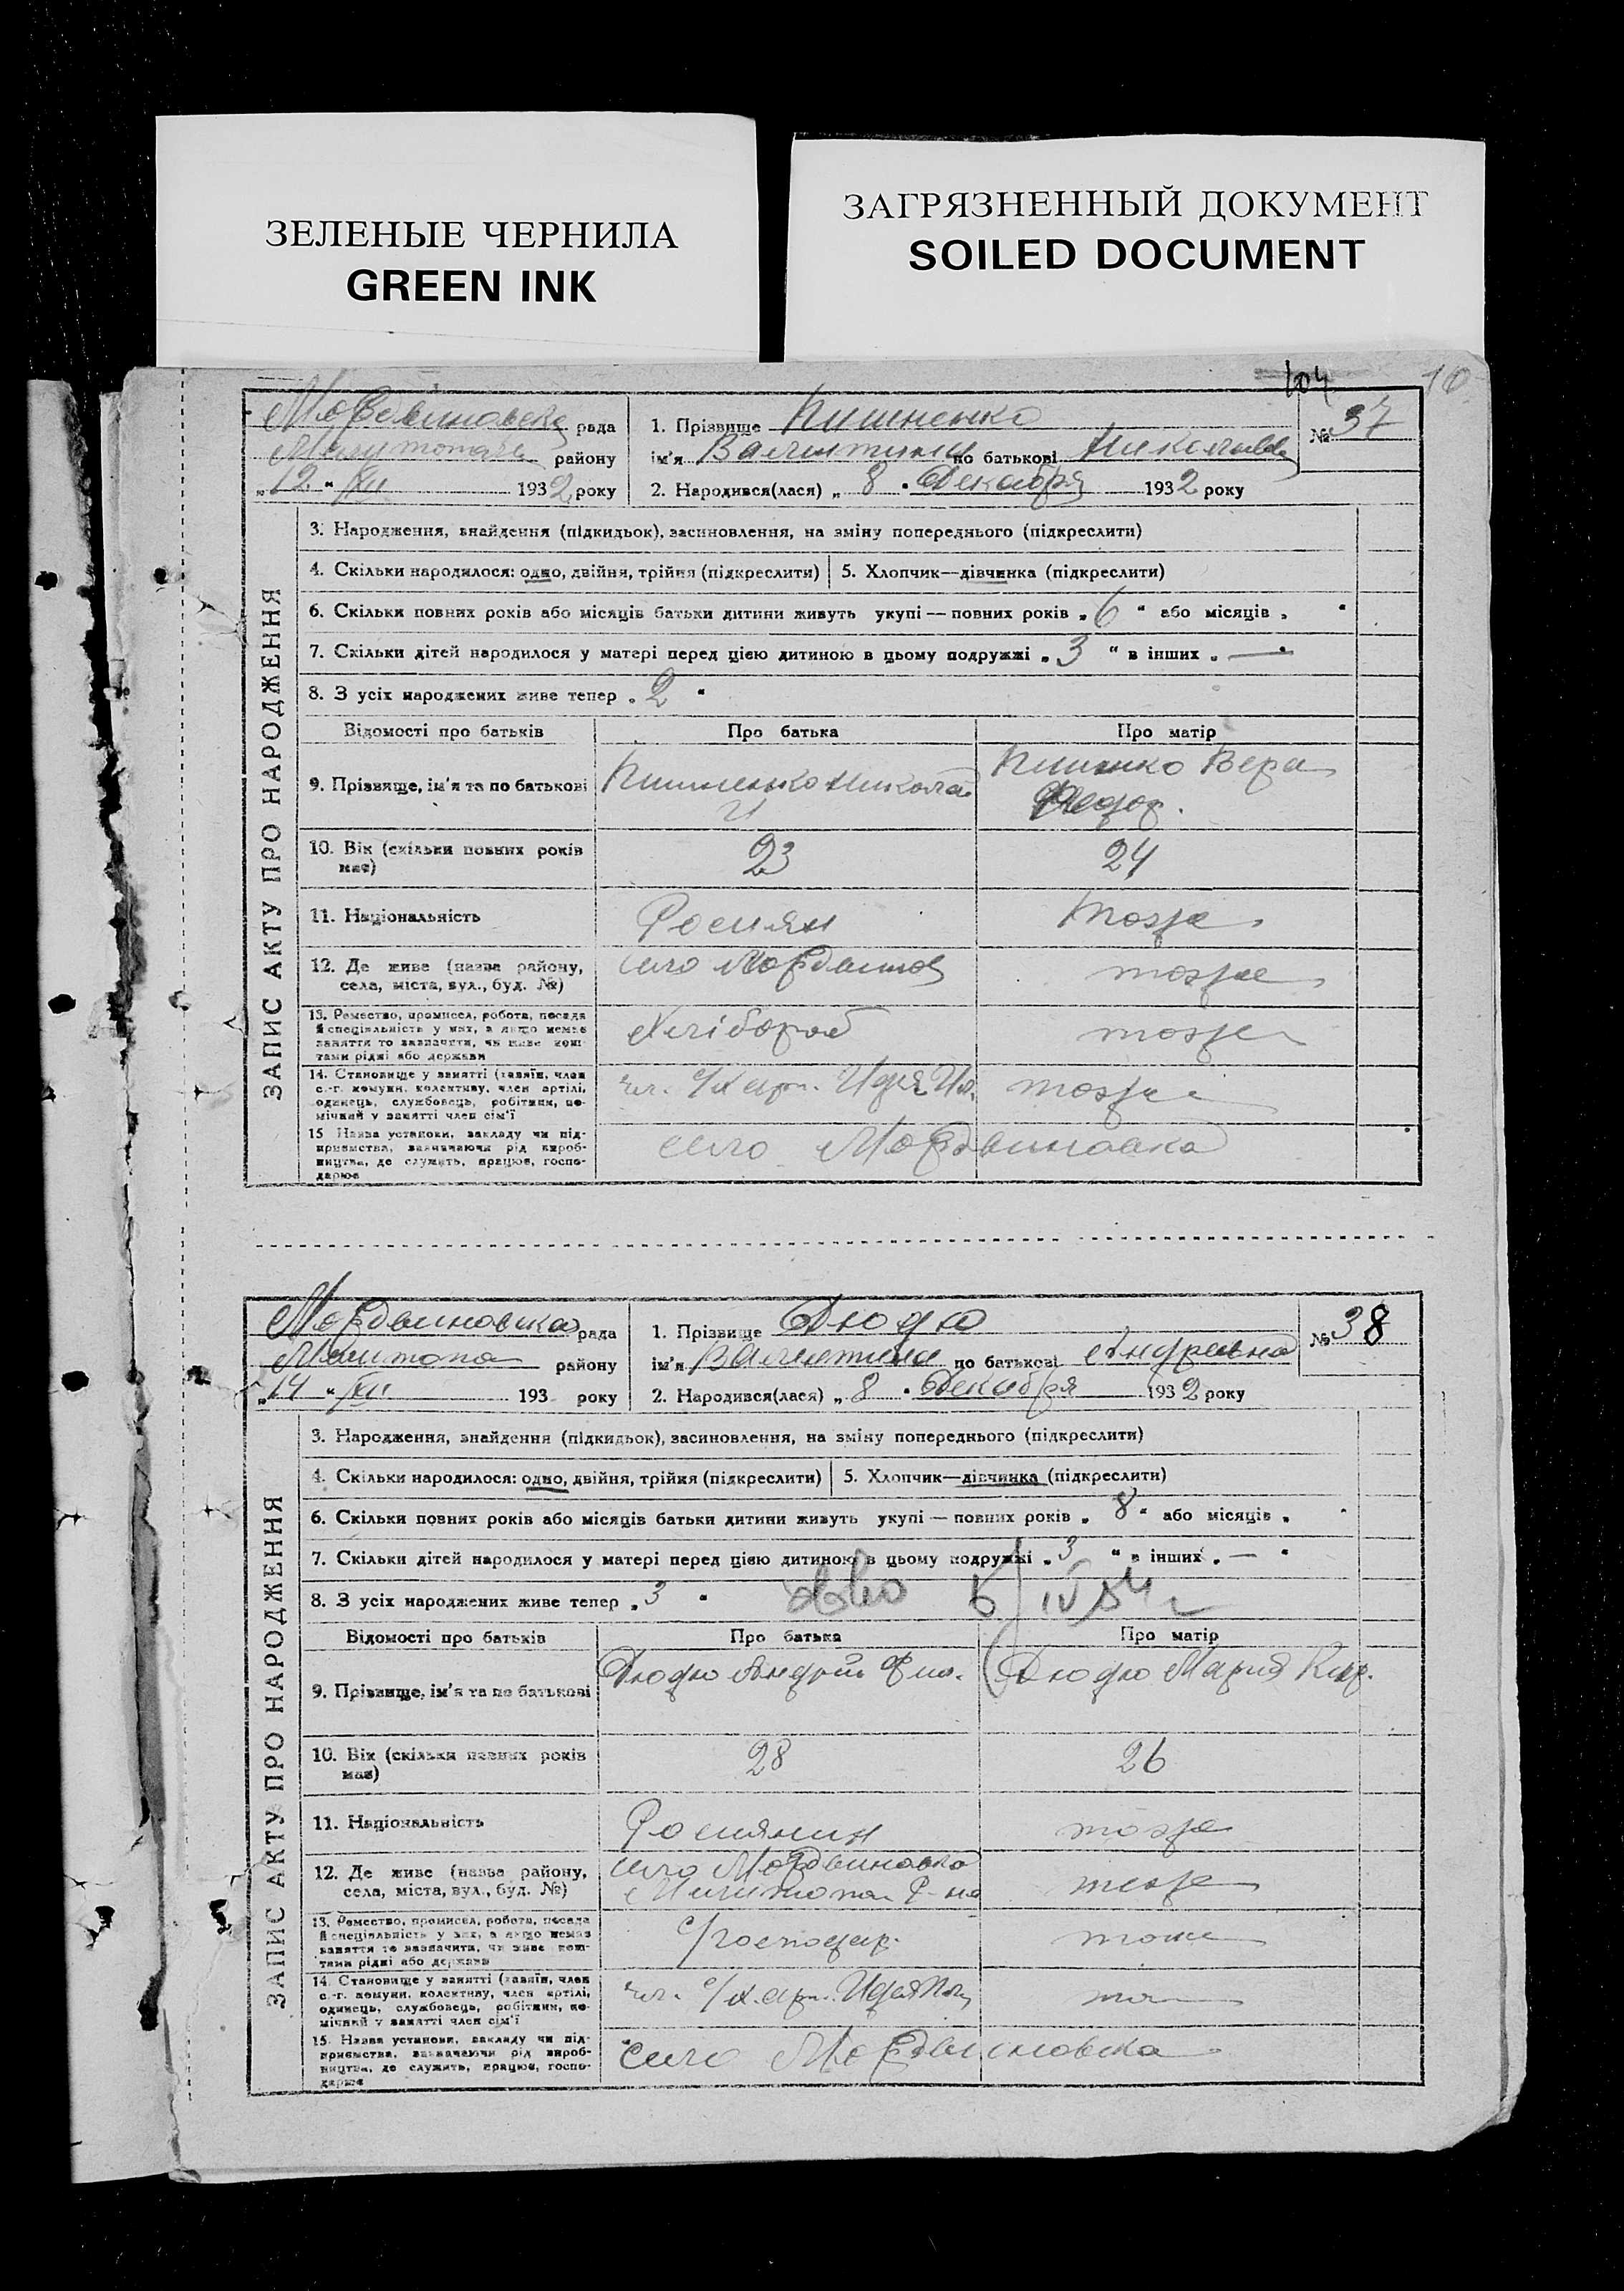 ЗЕЛЕНЫЕ ЧЕРНИЛА
GREEN INK
ЗАГРЯЗНЕННЫЙ ДОКУМЕНТ
SOILED DOCUMENT
104
10
рада
району
„12 " XII 1932 року
1. Прізвище
ім'я Валентина по батькові
2. Народився(лася) „ 8 " Декабря 1932 року
№ 37
ЗАПИС АКТУ ПРО НАРОДЖЕННЯ
3. Народження, знайдення (підкидьок), засиновлення, на зміну попереднього (підкреслити)
4. Скільки народилося: одно, двійня, трійня (підкреслити)
5. Хлопчик—дівчинка (підкреслити)
6. Скільки повних років або місяців батьки дитини живуть укупі — повних років „ 6 " або місяців „ "
7. Скільки дітей народилося у матері перед цією дитиною в цьому подружжі „ 3 " в інших „ — "
8. З усіх народжених живе тепер „ 2 "
Відомості про батьків
Про батька
Про матір
9. Прізвище, ім'я та по батькові
Вера
Федор.
10. Вік (скільки повних років
має)
23
24
11. Національність
Росиян
тоже
12. Де живе (назва району,
села, міста, вул., буд. №)
село
тоже
13. Ремество, промисел, робота, посада
й спеціяльність у них, а якщо немає
заняття то зазначити, чи живе кош-
тами рідні або держави
Хлібороб
тоже
14. Становище у занятті (хазяїн, член
с.-г. комуни, колективу, член артілі,
одинець, службовець, робітник, по-
мічний у занятті член сім'ї
чл. с/х арт.
тоже
15. Назва установи, закладу чи під-
приємства, зазначаючи рід вироб-
ництва, де служить, працює, госпо-
дарює
село Мордвиновка
Мордвиновка рада
району
„14 " XII 193 року
1. Прізвище Дюдю
ім'я Валентина по батькові Андреевна
2. Народився(лася) „ 8 " Декабря 1932 року
№ 38
ЗАПИС АКТУ ПРО НАРОДЖЕННЯ
3. Народження, знайдення (підкидьок), засиновлення, на зміну попереднього (підкреслити)
4. Скільки народилося: одно, двійня, трійня (підкреслити)
5. Хлопчик—дівчинка (підкреслити)
6. Скільки повних років або місяців батьки дитини живуть укупі — повних років „ 8 " або місяців „ "
7. Скільки дітей народилося у матері перед цією дитиною в цьому подружжі „ 3 " в інших „ — "
8. З усіх народжених живе тепер „ 3 "
Відомості про батьків
Про батька
Про матір
9. Прізвище, ім'я та по батькові
Дюдю Андрій
Дюдю Мария
10. Вік (скільки повних років
має)
28
26
11. Національність
Росиянин
тоже
12. Де живе (назва району,
села, міста, вул., буд. №)
село Мордвиновка
Р-на
тоже
13. Ремество, промисел, робота, посада
й спеціяльність у них, а якщо немає
заняття то зазначити, чи живе кош-
тами рідні або держави
с/господар.
тоже
14. Становище у занятті (хазяїн, член
с.-г. комуни, колективу, член артілі,
одинець, службовець, робітник, по-
мічний у занятті член сім'ї
чл. с/х. арт.
15. Назва установи, закладу чи під-
приємства, зазначаючи рід вироб-
ництва, де служить, працює, госпо-
дарює
село Мордвиновка